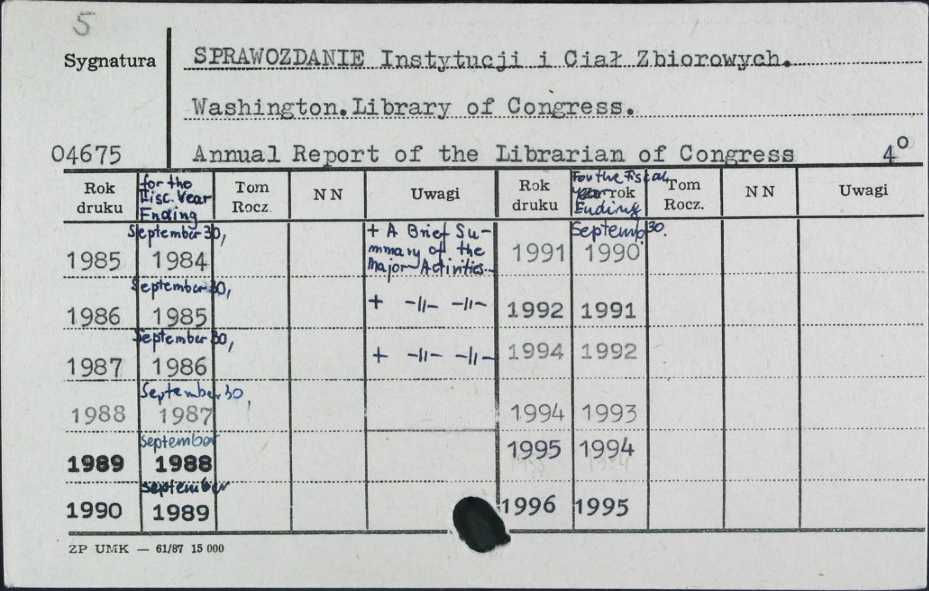 5
Sygnatura
SPRAWOZDANIE Instytucji i Ciał Zbiorowych.
Washington. Library of Congress.
04675 Annual Report of the Librarian of Congress 4°
Rok druku for the Fisc. Year Ending Tom Rocz. N N Uwagi Rok druku For the Fiscal Year rok Ending Tom Rocz. N N Uwagi
September 30, + A Brief Su- Septemb. 30.
1985 1984 mmary of the 1991 1990
Major Activities
September 30,
1986 1985 + -||- -||- 1992 1991
September 30,
1987 1986 + -||- -||- 1994 1992
September 30,
1988 1987 1994 1993
September
1989 1988 1995 1994
september
1990 1989 1996 1995
ZP UMK — 61/87 15 000